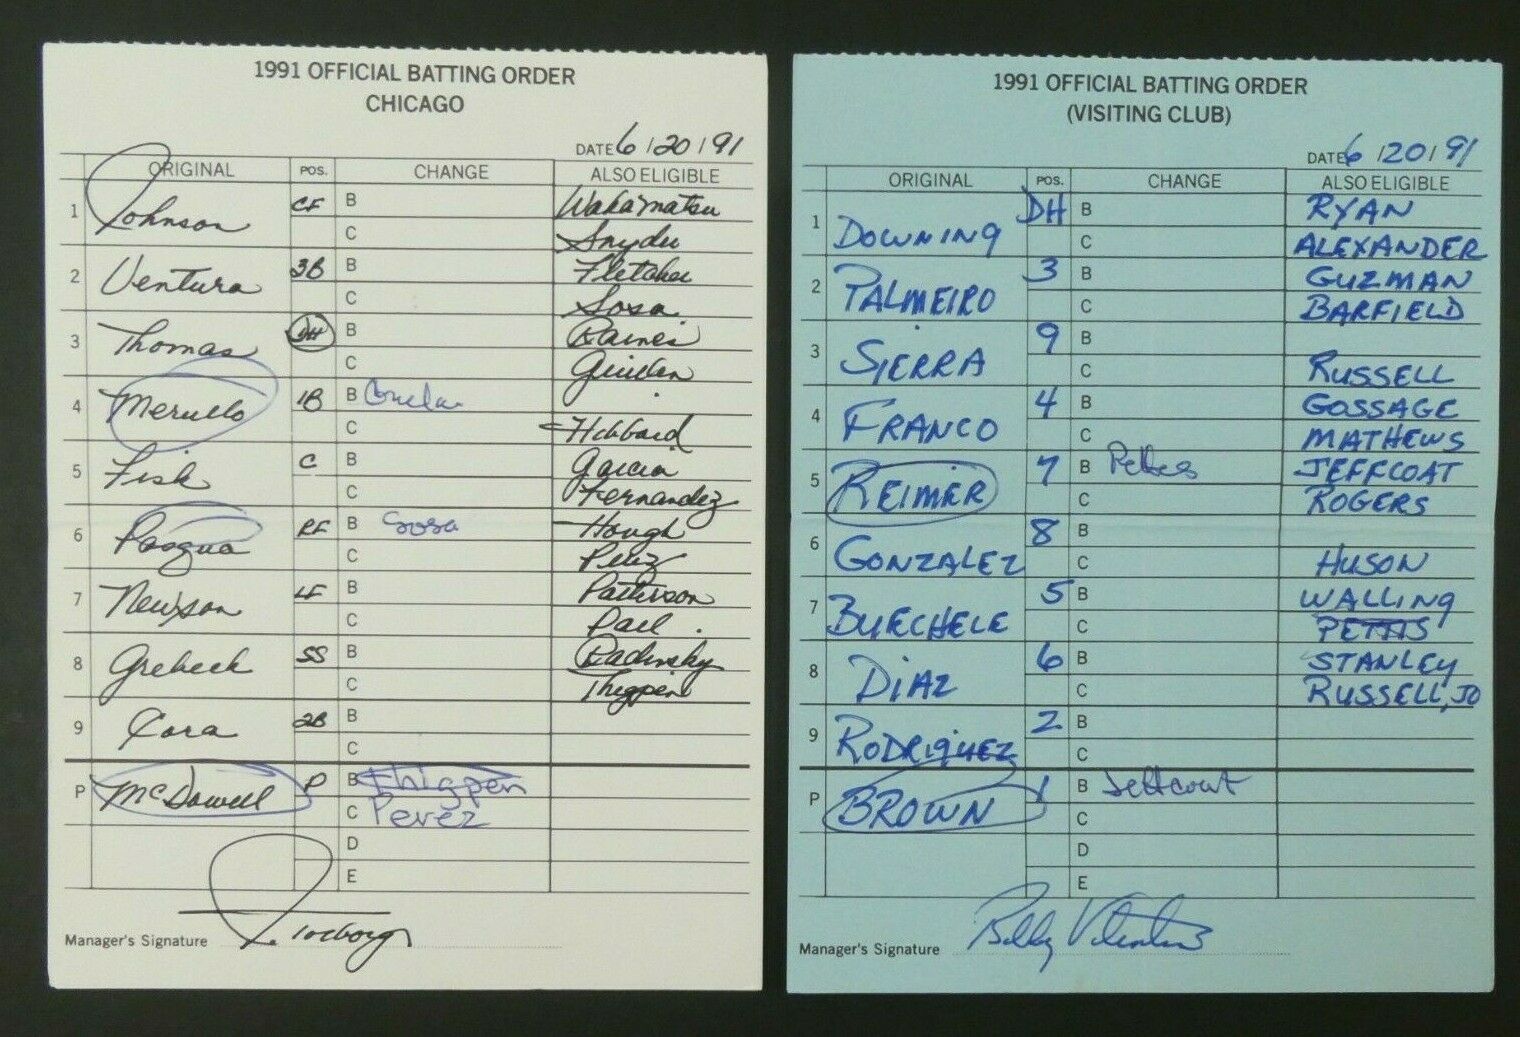 1991 OFFICIAL BATTING ORDER
CHICAGO
DATE 6/20/91
ORIGINAL POS. CHANGE ALSO ELIGIBLE
1 Johnson CF B Wakamatsu
C Snyder
2 Ventura 3B B Fletcher
C Sosa
3 Thomas DH B Raines
C Guillen
4 Merullo 1B B
C Hibbard
5 Fisk C B Garcia
C Fernandez
6 Pasqua RF B Sosa Hough
C Perez
7 Newson LF B Patterson
C Pall
8 Grebeck SS B Radinsky
C Thigpen
9 Cora 2B B
C
P McDowell P B Thigpen
C Perez
D
E
Manager's Signature
1991 OFFICIAL BATTING ORDER
(VISITING CLUB)
DATE 6/20/91
ORIGINAL POS. CHANGE ALSO ELIGIBLE
1 DOWNING DH B RYAN
C ALEXANDER
2 PALMEIRO 3 B GUZMAN
C BARFIELD
3 SIERRA 9 B
C RUSSELL
4 FRANCO 4 B GOSSAGE
C MATHEWS
5 REIMER 7 B Pettis JEFFCOAT
C ROGERS
6 GONZALEZ 8 B
C HUSON
7 BUECHELE 5 B WALLING
C PETTIS
8 DIAZ 6 B STANLEY
C RUSSELL, JO
9 RODRIGUEZ 2 B
C
P BROWN 1 B Jeffcoat
C
D
E
Manager's Signature Bobby Valentine